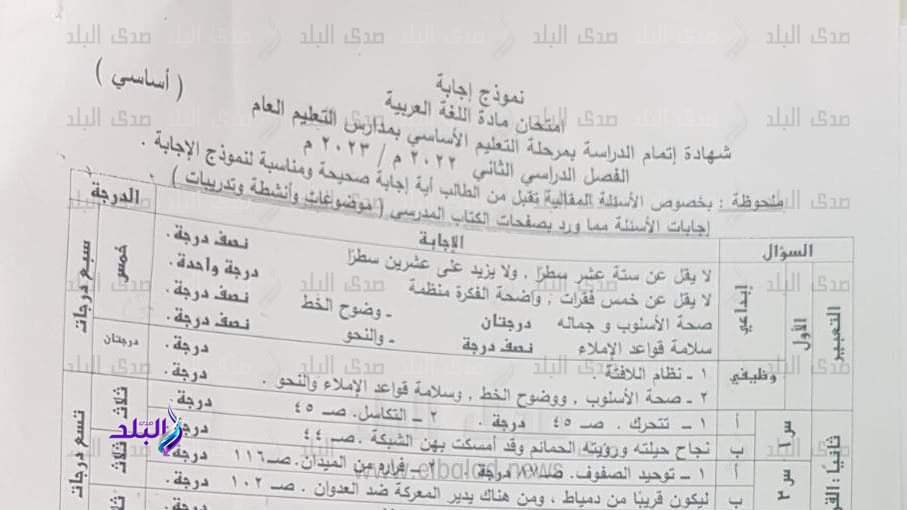 نموذج إجابة
( أساسي )
امتحان مادة اللغة العربية
شهادة إتمام الدراسة بمرحلة التعليم الأساسي بمدارس التعليم العام
الفصل الدراسي الثاني ٢٠٢٢ م / ٢٠٢٣ م
ملحوظة : بخصوص الأسئلة المقالية تقبل من الطالب أية إجابة صحيحة ومناسبة لنموذج الإجابة .
إجابات الأسئلة مما ورد بصفحات الكتاب المدرسي ( موضوعات وأنشطة وتدريبات )
السؤال الإجابة الدرجة
التعبير الأول إبداعي خمس سبع درجات
لا يقل عن ستة عشر سطرًا ، ولا يزيد على عشرين سطرًا نصف درجة .
لا يقل عن خمس فقرات ، واضحة الفكرة منظمة درجة واحدة .
صحة الأسلوب و جماله درجتان - وضوح الخط نصف درجة .
سلامة قواعد الإملاء نصف درجة - والنحو نصف درجة .
وظيفي ١ - نظام اللافتة . درجة . درجتان
٢ - صحة الأسلوب ، ووضوح الخط ، وسلامة قواعد الإملاء والنحو . درجة .
ثانيًا : س١ أ ١ - تتحرك . صـ ٤٥ درجة . ٢ - التكاسل . صـ ٤٥ درجة . ثلاث تسع درجات
ب نجاح حيلته ورؤيته الحمائم وقد أمسكت بهن الشبكة . صـ ٤٤ درجة .
س٢ أ ١ - توحيد الصفوف . درجة ٢ - فراره من الميدان . صـ ١١٦ درجة . ثلاث
ب ليكون قريبًا من دمياط ، ومن هناك يدير المعركة ضد العدوان . صـ ١٠٢ درجة .
صدى البلد
www.elbalad.news